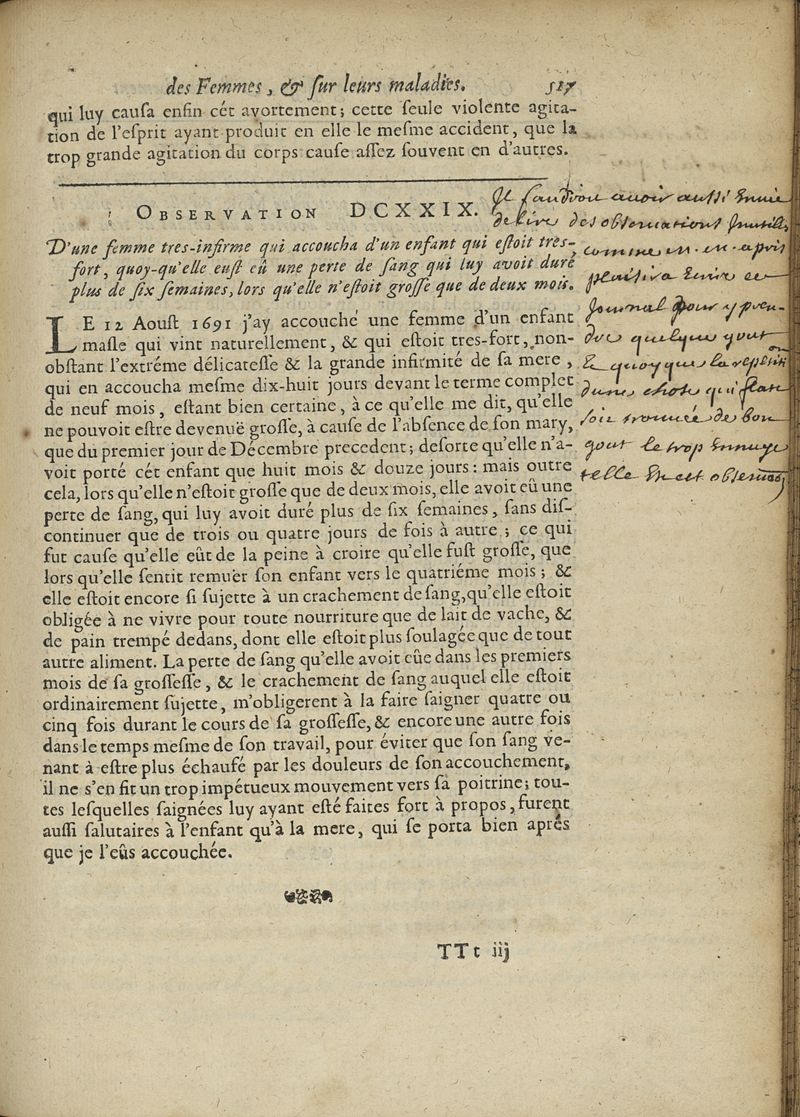 des Femmes, & ſur leurs maladies. 517
qui luy cauſa enfin cét avortement; cette ſeule violente agita-
tion de l'eſprit ayant produit en elle le meſme accident, que la
trop grande agitation du corps cauſe aſſez ſouvent en d'autres.
OBSERVATION DCXXIX.
D'une femme tres-infirme qui accoucha d'un enfant qui eſtoit tres-
fort, quoy-qu'elle euſt eû une perte de ſang qui luy avoit duré
plus de ſix ſemaines, lors qu'elle n'eſtoit groſſe que de deux mois.
LE 12 Aouſt 1691 j'ay accouché une femme d'un enfant
maſle qui vint naturellement, & qui eſtoit tres-fort, non-
obſtant l'extréme délicateſſe & la grande infirmité de ſa mere,
qui en accoucha meſme dix-huit jours devant le terme complet
de neuf mois, eſtant bien certaine, à ce qu'elle me dit, qu'elle
ne pouvoit eſtre devenuë groſſe, à cauſe de l'abſence de ſon mary,
que du premier jour de Décembre precedent; deſorte qu'elle n'a-
voit porté cét enfant que huit mois & douze jours: mais outre
cela, lors qu'elle n'eſtoit groſſe que de deux mois, elle avoit eû une
perte de ſang, qui luy avoit duré plus de ſix ſemaines, ſans diſ-
continuer que de trois ou quatre jours de fois à autre; ce qui
fut cauſe qu'elle eût de la peine à croire qu'elle fuſt groſſe, que
lors qu'elle ſentit remuër ſon enfant vers le quatriéme mois; &
elle eſtoit encore ſi ſujette à un crachement de ſang, qu'elle eſtoit
obligée à ne vivre pour toute nourriture que de lait de vache, &
de pain trempé dedans, dont elle eſtoit plus ſoulagée que de tout
autre aliment. La perte de ſang qu'elle avoit eûe dans les premiers
mois de ſa groſſeſſe, & le crachement de ſang auquel elle eſtoit
ordinairement ſujette, m'obligerent à la faire ſaigner quatre ou
cinq fois durant le cours de ſa groſſeſſe, & encore une autre fois
dans le temps meſme de ſon travail, pour éviter que ſon ſang ve-
nant à eſtre plus échaufé par les douleurs de ſon accouchement,
il ne s'en fit un trop impétueux mouvement vers ſa poitrine; tou-
tes leſquelles ſaignées luy ayant eſté faites fort à propos, furent
auſſi ſalutaires à l'enfant qu'à la mere, qui ſe porta bien aprés
que je l'eûs accouchée.
TTt iij
Il faudroit auoir aussi Enuie
de lire des obseruations
comme
plaisir a lire ce
Journal pour y pren-
dre quelque gout
& quoy que
chose
soit trouuée de bon
gout
telle obseruaon